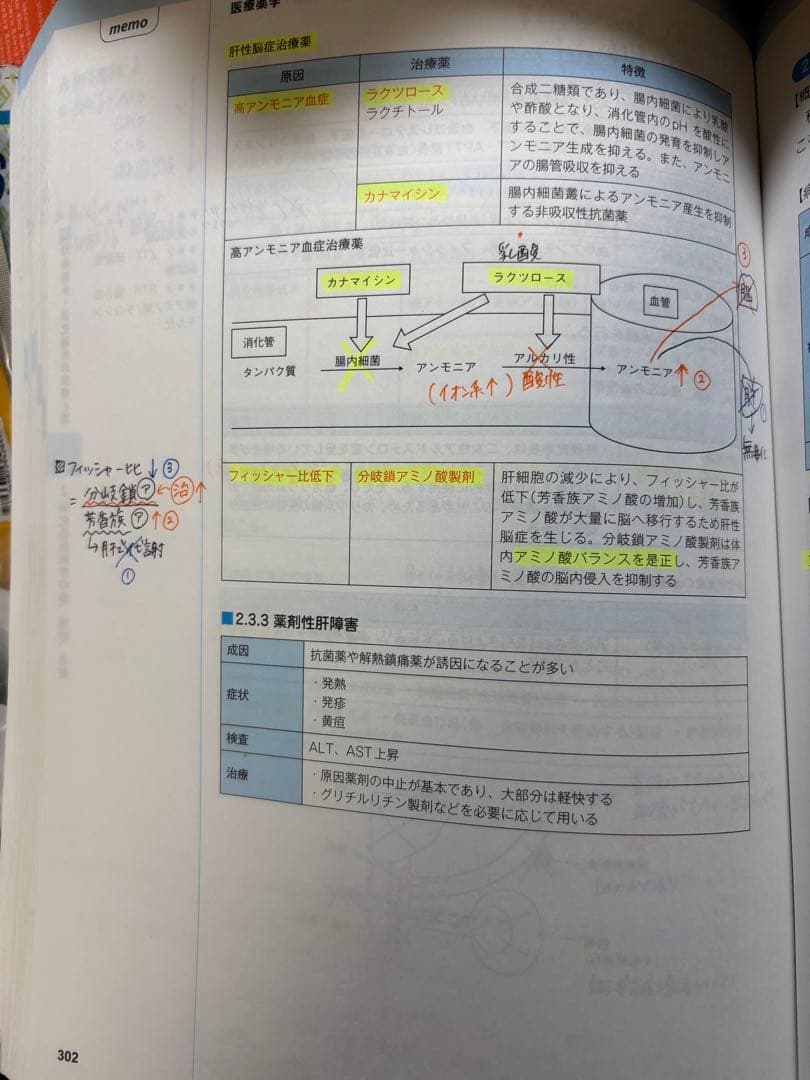 memo
医療薬学
肝性脳症治療薬
原因
治療薬
特徴
高アンモニア血症
ラクツロース
ラクチトール
合成二糖類であり、腸内細菌により乳酸
や酢酸となり、消化管内のpH を酸性に
することで、腸内細菌の発育を抑制しア
ンモニア生成を抑える。また、アンモニ
アの腸管吸収を抑える
カナマイシン
腸内細菌叢によるアンモニア産生を抑制
する非吸収性抗菌薬
高アンモニア血症治療薬
乳酸
カナマイシン
ラクツロース
血管
③
脳
消化管
タンパク質
腸内細菌
アンモニア
アルカリ性
アンモニア
↑②
(イオン系↑)
酸性
肝
①
無毒化
フィッシャー比低下
分岐鎖アミノ酸製剤
肝細胞の減少により、フィッシャー比が
低下(芳香族アミノ酸の増加)し、芳香族
アミノ酸が大量に脳へ移行するため肝性
脳症を生じる。分岐鎖アミノ酸製剤は体
内アミノ酸バランスを是正し、芳香族ア
ミノ酸の脳内侵入を抑制する
フィッシャー比↓③
= 分岐鎖ア←治↑
芳香族ア↑②
↳肝で代謝
①
■2.3.3 薬剤性肝障害
成因
抗菌薬や解熱鎮痛薬が誘因になることが多い
症状
・発熱
・発疹
・黄疸
検査
ALT、AST上昇
治療
・原因薬剤の中止が基本であり、大部分は軽快する
・グリチルリチン製剤などを必要に応じて用いる
302